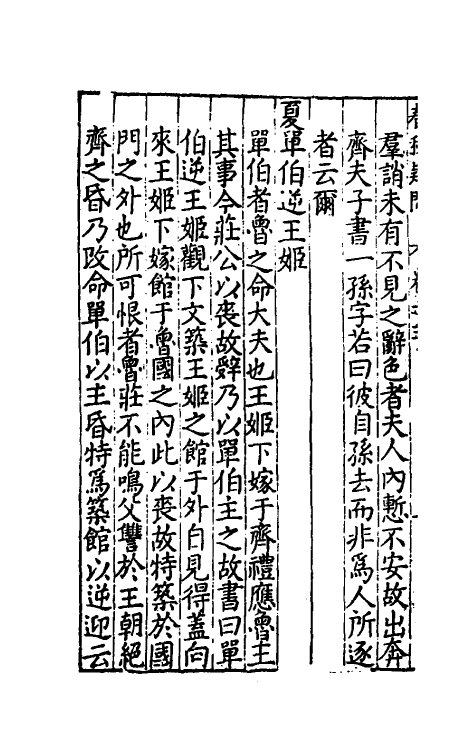 羣誚未有不見之辭色者夫人內慙不安故出奔
齊夫子書一孫字若曰彼自孫去而非爲人所逐
者云爾
夏單伯逆王姬
單伯者魯之命大夫也王姬下嫁于齊禮應魯主
其事今莊公以喪故辭乃以單伯主之故書曰單
伯逆王姬觀下文築王姬之館于外自見得蓋向
來王姬下嫁館于魯國之內此以喪故特築於國
門之外也所可恨者魯莊不能鳴父讐於王朝絕
齊之昏乃改命單伯以主昏特爲築館以逆迎云